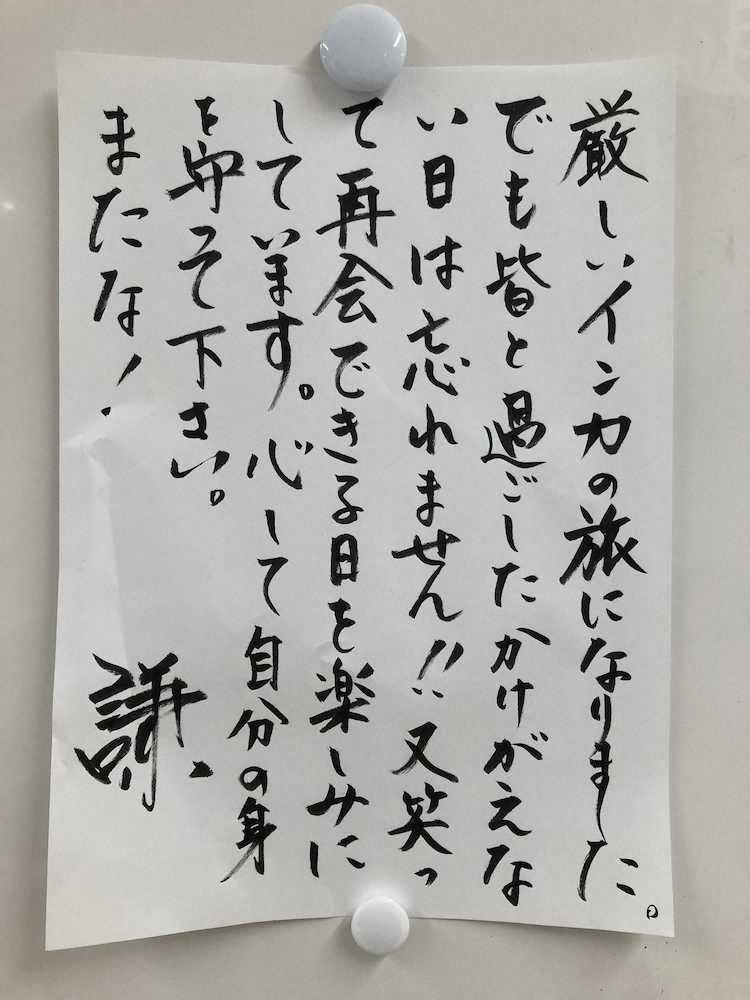 厳しいインカの旅になりました。
でも皆と過ごしたかけがえな
い日は忘れません!!又笑っ
て再会できる日を楽しみに
しています。心して自分の身
を守って下さい。
またな!
謙.